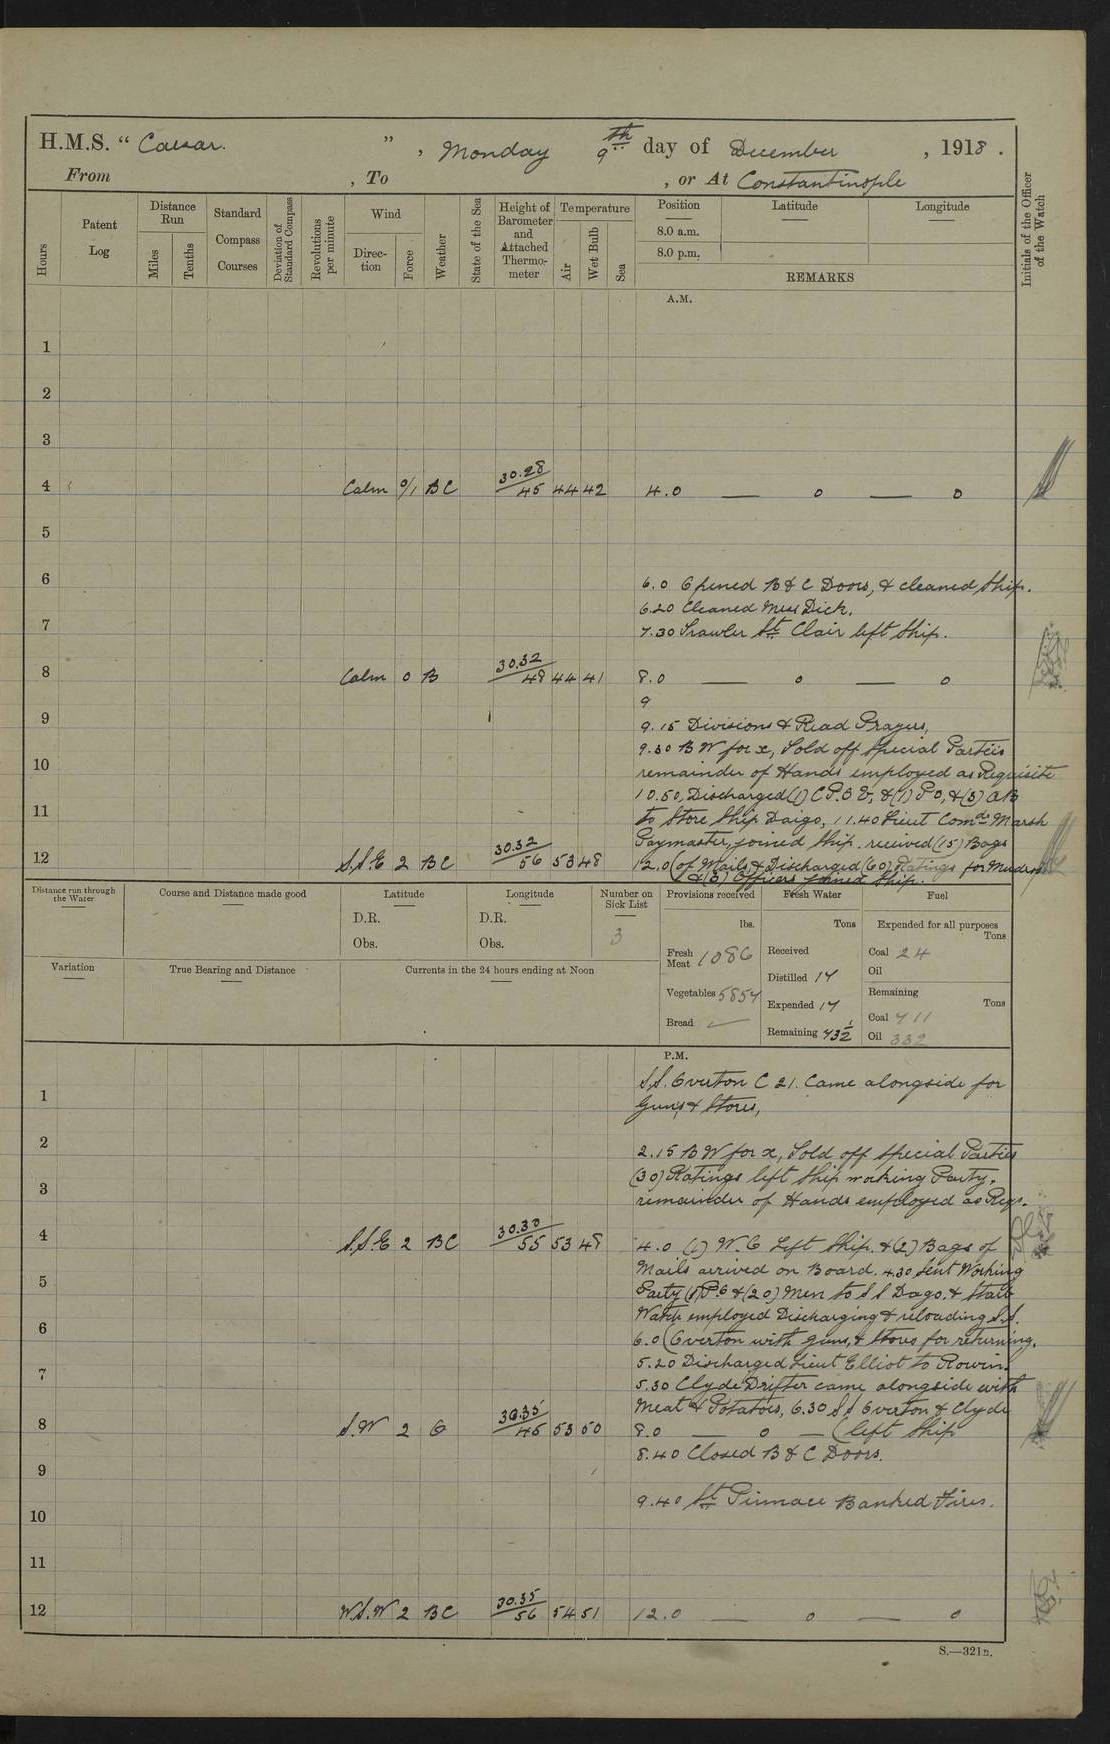 H.M.S. " Caesar. " , Monday 9th day of December , 1918 .
From , To , or At Constantinople
Hours
Patent Log
Distance Run
Miles
Tenths
Standard Compass Courses
Deviation of Standard Compass
Revolutions per minute
Wind
Direction
Force
Weather
State of the Sea
Height of Barometer and Attached Thermometer
Temperature
Air
Wet Bulb
Sea
Position
8.0 a.m.
8.0 p.m.
Latitude
Longitude
REMARKS
Initials of the Officer of the Watch
A.M.
1
2
3
4 Calm 0/1 BC 30.28/45 44 42 4.0 — 0 — 0
5
6 6.0 Opened B & C Doors, & cleaned Ship.
6.20 Cleaned Mess Dick.
7 7.30 Trawler St Clair left Ship.
8 Calm 0 B 30.32/48 44 41 8.0 — 0 — 0
9
9 9.15 Divisions & Read Prayers,
9.30 B W for x, Told off Special Parties
10 remainder of Hands employed as Requisite
10.50, Discharged (1) C.P.O &, & (1) P.O, & (3) AB
11 to Store Ship Daigo, 11.40 Lieut Comdr Marsh
Paymaster, joined Ship. received (15) Bags
12 S.S.E 2 BC 30.32/56 53 48 12.0 (of Mails & Discharged (60) Ratings for Mudros
& (3) Officers joined Ship.
Distance run through the Water
Course and Distance made good
Latitude
D.R.
Obs.
Longitude
D.R.
Obs.
Number on Sick List
3
Provisions received
lbs.
Fresh Meat 1086
Vegetables 5857
Bread
Fresh Water
Tons
Received
Distilled 17
Expended 17
Remaining 73½
Fuel
Expended for all purposes
Tons
Coal 24
Oil
Remaining
Tons
Coal 711
Oil 332
Variation
True Bearing and Distance
Currents in the 24 hours ending at Noon
P.M.
S.S. Overton C 21. Came alongside for
1 Guns & Stores,
2 2.15 B W for x, Told off Special Parties
(30) Ratings left Ship working Party,
3 remainder of Hands employed as Req.
4 S.S.E 2 BC 30.30/55 53 48 4.0 (1) W.O Left Ship. & (2) Bags of
Mails arrived on Board. 4.30 Sent Working
5 Party (1) P.O & (20) Men to S S Dago. & Starb
Watch employed Discharging & reloading S.S.
6 6.0 (Overton with Guns, & Stores for returning.
5.20 Discharged Lieut Elliot to Rowin.
7 5.30 Clyde Drifter came alongside with
Meat & Potatoes, 6.30 S S Overton & Clyde
8 S.W 2 O 30.35/45 53 50 8.0 — 0 — (left Ship
8.40 Closed B & C Doors.
9
10 9.40 St Pinnace Banked Fires.
11
12 W.S.W 2 BC 30.35/56 54 51 12.0 — 0 — 0
S.—321B.